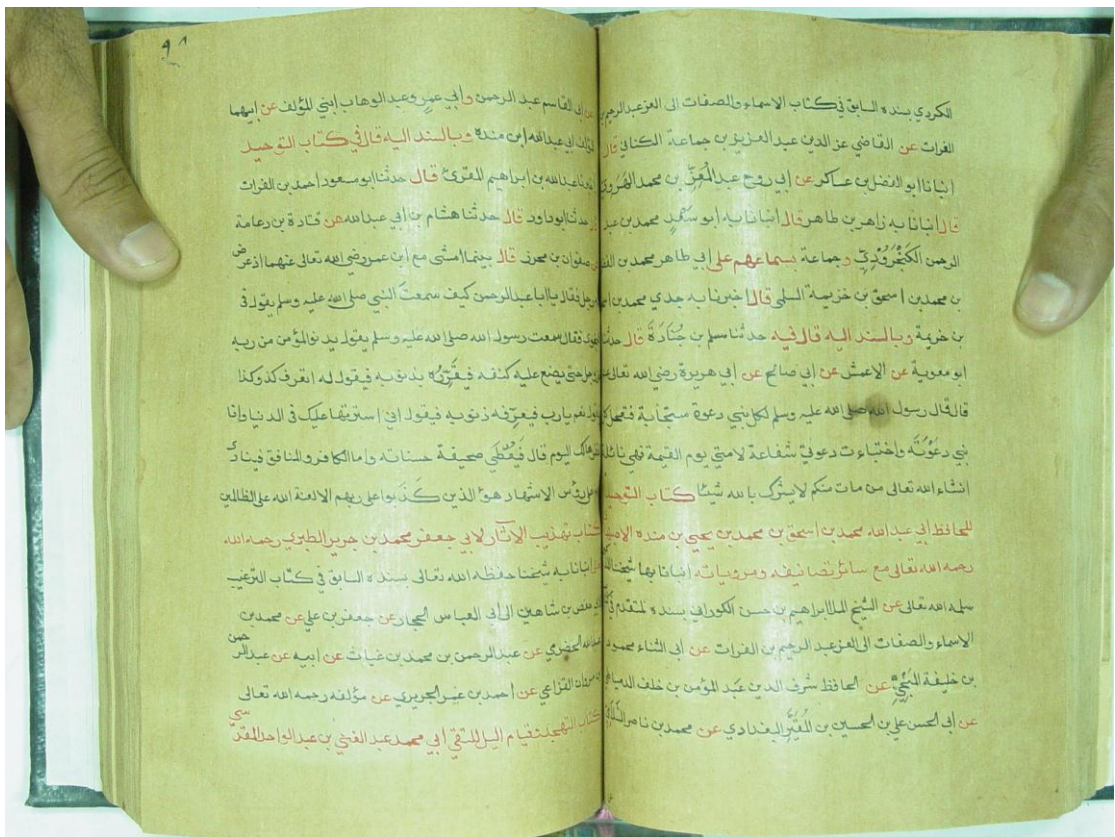 الكردي بسنده السابق في كتاب الاسماء والصفات الى العز عبد الرحيم بن
الفرات عن القاضي عز الدين عبد العزيز بن جماعة الكناني قال
انبانا ابو الفضل بن عساكر عن ابي روح عبد المُعِزّ بن محمد الهَرَوي
قال انبانا به زاهر بن طاهر قال انبانا به ابو سَعْدٍ محمد بن عبد
الرحمن الكَنْجَرُوذِيّ وجماعة بسماعهم على ابي طاهر محمد بن الفضل
بن محمد بن اسحق بن خزيمة السلمي قال اخبرنا به جدي محمد بن اسحق
بن خزيمة وبالسند اليه قال فيه حدثنا سلم بن جُنَادَة قال حدثنا
ابو معوية عن الاعمش عن ابي صالح عن ابي هريرة رضي الله تعالى عنه
قال قال رسول الله صلى الله عليه وسلم لكل نبي دعوة مستجابة فتعجل كل
نبي دَعْوَتَه واختباءت دعوتي شفاعة لامتي يوم القيمة فهي نائلة
انشاء الله تعالى من مات منكم لا يشرك بالله شيئا كتاب التوحيد
للحافظ ابي عبد الله محمد بن اسحق بن محمد بن يحيى بن منده
رحمه الله تعالى مع سائر تصانيفه ومروياته انبانا بها شيخنا
سلمه الله تعالى عن الشيخ الملا ابراهيم بن حسن الكوراني بسنده المتقدم في
الاسماء والصفات الى العز عبد الرحيم بن الفرات عن ابي الثناء محمود
بن خليفة المَنْبِجِيّ عن الحافظ شرف الدين عبد المؤمن بن خلف الدمياطي
عن ابي الحسن علي بن الحسين بن المُقَيَّر البغدادي عن محمد بن ناصر السَّلَامي
٩٨
عن ابي القاسم عبد الرحمن وابي عمرٍو عبد الوهاب ابني المؤلف عن ابيهما
المؤلف ابي عبد الله ابن منده وبالسند اليه قال في كتاب التوحيد
عبد الله بن ابراهيم المقرئ قال حدثنا ابو مسعود احمد بن الفرات
قال حدثنا ابو داود قال حدثنا هشام بن ابي عبد الله عن قتادة بن دعامة
عن صفوان بن محرز قال بينما امشي مع ابن عمر رضي الله تعالى عنهما اذ عرض
رجل فقال يا ابا عبد الرحمن كيف سمعتَ النبي صلى الله عليه وسلم يقول في
النجوى فقال سمعت رسول الله صلى الله عليه وسلم يقول يدنو المؤمن من ربه
عز وجل حتى يضع عليه كنفه فيقرّره بذنوبه فيقول له اتعرف كذ وكذا
فيقول نعم يا رب فيعرّفه ذنوبه فيقول اني استرتها عليك في الدنيا وانا
اليوم قال فيُعْطَى صحيفة حسناته واما الكافر والمنافق فينادى
على رؤس الاشهاد هؤ الذين كَذَبوا على ربهم الا لعنة الله على الظالمين
كتاب تهذيب الآثار لابي جعفر محمد بن جرير الطبري رحمه الله
انبانا به شيخنا حفظه الله تعالى بسنده السابق في كتاب الترغيب
لابي حفص بن شاهين الى ابي العباس الحجار عن جعفر بن علي عن محمد بن
عبد الله الحضرمي عن عبد الرحمن بن محمد بن غياث عن ابيه عن عبد الرحمن
بن مروان القزاعي عن احمد بن عمر الجريري عن مؤلفه رحمه الله تعالى
كتاب التهجد بقيام اليل للتقي ابي محمد عبد الغني بن عبد الواحد المقدسي